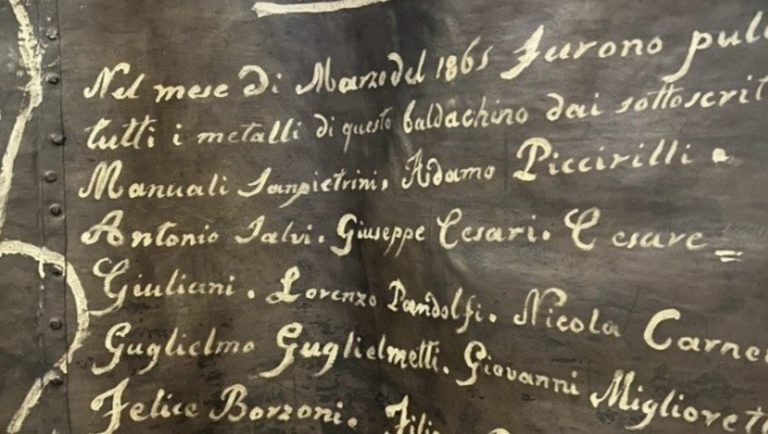 Nel mese di Marzo del 1865 furono puli
tutti i metalli di questo baldachino dai sottoscrit
Manuali Sanpietrini. Adamo Piccirilli.
Antonio Salvi. Giuseppe Cesari. Cesare =
Giuliani. Lorenzo Pandolfi. Nicola Carne
Guglielmo Guglielmetti. Giovanni Migliore
Felice Borzoni. Fili